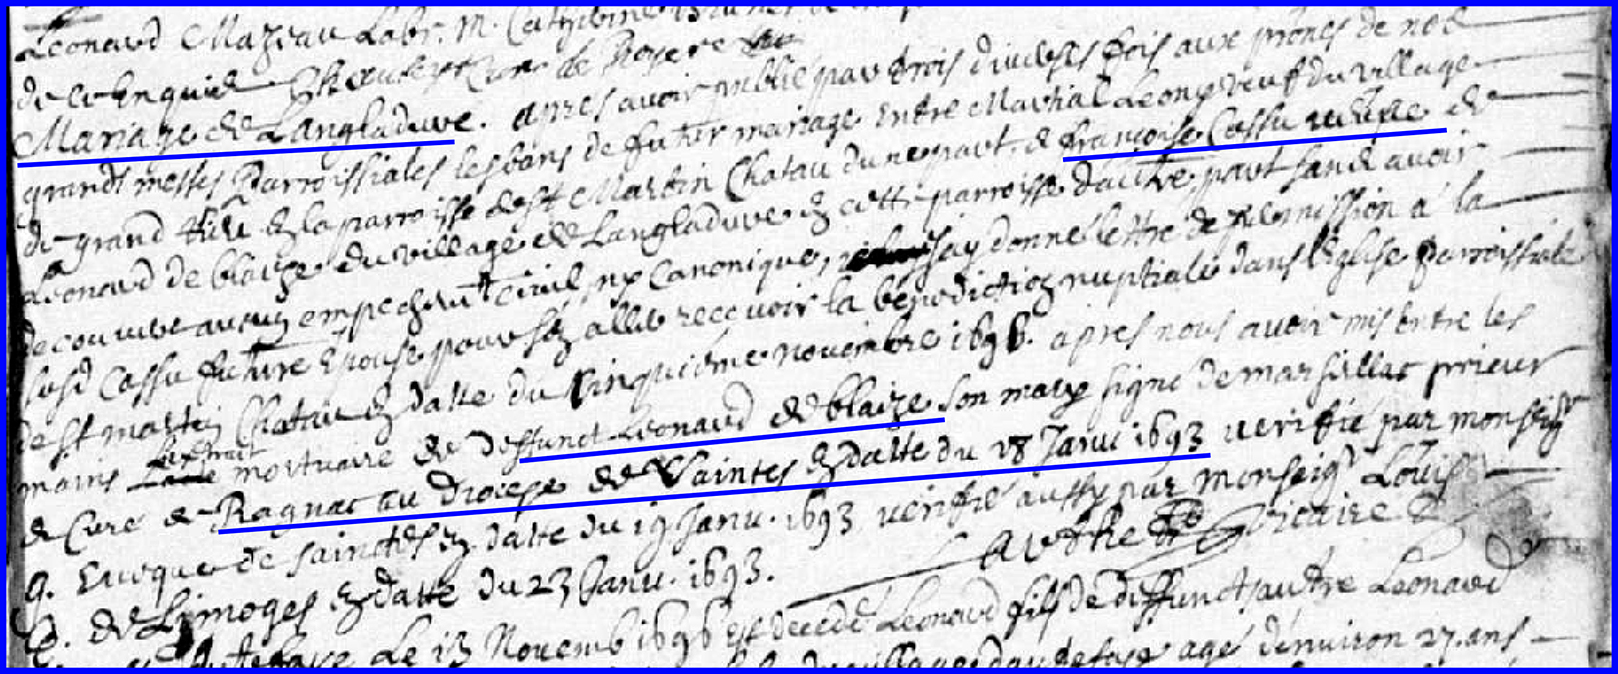 Leonard Mazeau Labr. m. Catherine
de et Enquid Curé de Royere
Mariage de Langladure. apres avoir publié par trois diverses fois aux prônes de nos
grands messes Parroissiales les bans de futur mariage entre Martial Leony veuf du village
de grand et la parroisse de st Martin Chatau dune part. & françoise Cassu veufve de
Leonard de blaize du village de Langladure en cette parroisse dautre part sans avoir
decouvert aucun empechemt civil ny Canonique, jay donné lettre de permission a la
susd Cassu future Epouse pour sen aller recevoir la bénédiction nuptiale dans léglise parroissiale
de st martin Chatau en datte du cinquième novembre 1696. apres nous avoir mis entre les
mains lextrait mortuaire de deffunct Leonard de blaize son mary signé de marsillac prieur
& Curé de Ragnac au diocese de Saintes en datte du 18 Janv 1693 verifié par monseigr
g. Evéque de sainctes en datte du 19 Janv. 1693 verifié aussy par monseigr Louis
E. de Limoges en datte du 23 Janv. 1693. vicaire
Le 13 Novemb 1696 est decedé Leonard fils de deffunct autre Leonard
du village age denviron 27. ans